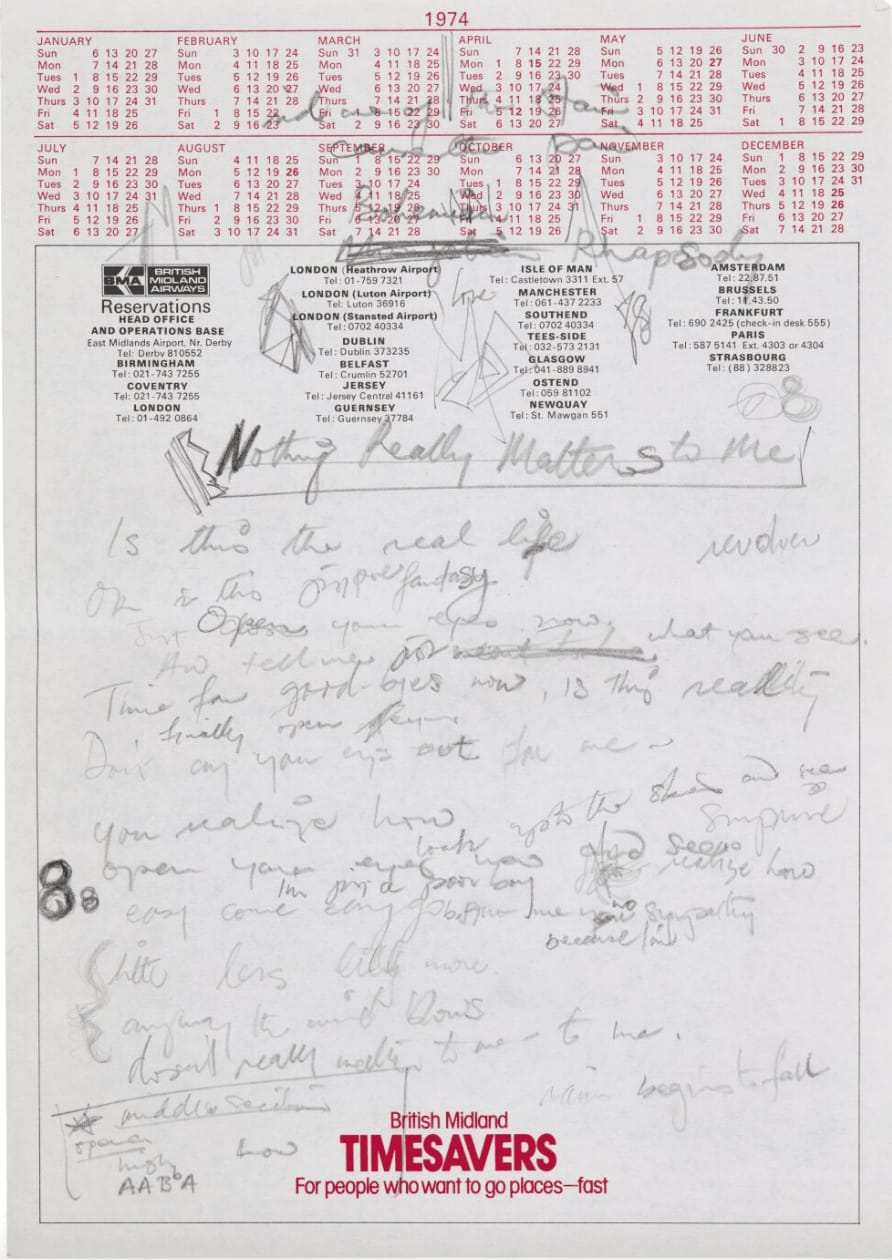 1974
JANUARY FEBRUARY MARCH APRIL MAY JUNE
Sun 6 13 20 27 Sun 3 10 17 24 Sun 31 3 10 17 24 Sun 7 14 21 28 Sun 5 12 19 26 Sun 30 2 9 16 23
Mon 7 14 21 28 Mon 4 11 18 25 Mon 4 11 18 25 Mon 1 8 15 22 29 Mon 6 13 20 27 Mon 3 10 17 24
Tues 1 8 15 22 29 Tues 5 12 19 26 Tues 5 12 19 26 Tues 2 9 16 23 30 Tues 7 14 21 28 Tues 4 11 18 25
Wed 2 9 16 23 30 Wed 6 13 20 27 Wed 6 13 20 27 Wed 3 10 17 24 Wed 1 8 15 22 29 Wed 5 12 19 26
Thurs 3 10 17 24 31 Thurs 7 14 21 28 Thurs 7 14 21 28 Thurs 4 11 18 25 Thurs 2 9 16 23 30 Thurs 6 13 20 27
Fri 4 11 18 25 Fri 1 8 15 22 Fri 1 8 15 22 29 Fri 5 12 19 26 Fri 3 10 17 24 31 Fri 7 14 21 28
Sat 5 12 19 26 Sat 2 9 16 23 Sat 2 9 16 23 30 Sat 6 13 20 27 Sat 4 11 18 25 Sat 1 8 15 22 29
JULY AUGUST SEPTEMBER OCTOBER NOVEMBER DECEMBER
Sun 7 14 21 28 Sun 4 11 18 25 Sun 1 8 15 22 29 Sun 6 13 20 27 Sun 3 10 17 24 Sun 1 8 15 22 29
Mon 1 8 15 22 29 Mon 5 12 19 26 Mon 2 9 16 23 30 Mon 7 14 21 28 Mon 4 11 18 25 Mon 2 9 16 23 30
Tues 2 9 16 23 30 Tues 6 13 20 27 Tues 3 10 17 24 Tues 1 8 15 22 29 Tues 5 12 19 26 Tues 3 10 17 24 31
Wed 3 10 17 24 31 Wed 7 14 21 28 Wed 4 11 18 25 Wed 2 9 16 23 30 Wed 6 13 20 27 Wed 4 11 18 25
Thurs 4 11 18 25 Thurs 1 8 15 22 29 Thurs 5 12 19 26 Thurs 3 10 17 24 31 Thurs 7 14 21 28 Thurs 5 12 19 26
Fri 5 12 19 26 Fri 2 9 16 23 30 Fri 6 13 20 27 Fri 4 11 18 25 Fri 1 8 15 22 29 Fri 6 13 20 27
Sat 6 13 20 27 Sat 3 10 17 24 31 Sat 7 14 21 28 Sat 5 12 19 26 Sat 2 9 16 23 30 Sat 7 14 21 28
Bohemian
Rhapsody
BMA BRITISH MIDLAND AIRWAYS
Reservations
HEAD OFFICE
AND OPERATIONS BASE
East Midlands Airport, Nr. Derby
Tel: Derby 810552
BIRMINGHAM
Tel: 021-743 7255
COVENTRY
Tel: 021-743 7255
LONDON
Tel: 01-492 0864
LONDON (Heathrow Airport)
Tel: 01-759 7321
LONDON (Luton Airport)
Tel: Luton 36916
LONDON (Stansted Airport)
Tel: 0702 40334
DUBLIN
Tel: Dublin 373235
BELFAST
Tel: Crumlin 52701
JERSEY
Tel: Jersey Central 41161
GUERNSEY
Tel: Guernsey 37784
ISLE OF MAN
Tel: Castletown 3311 Ext. 57
MANCHESTER
Tel: 061-437 2233
SOUTHEND
Tel: 0702 40334
TEES-SIDE
Tel: 032-573 2131
GLASGOW
Tel: 041-889 8941
OSTEND
Tel: 059 81102
NEWQUAY
Tel: St. Mawgan 551
AMSTERDAM
Tel: 22.87.51
BRUSSELS
Tel: 11.43.50
FRANKFURT
Tel: 690 2425 (check-in desk 555)
PARIS
Tel: 587 5141 Ext. 4303 or 4304
STRASBOURG
Tel: (88) 328823
Nothing Really Matters to Me
Is this the real life
Or is this fantasy
Just Open your eyes now
And tell me what you see.
Time for good-byes now, is this reality
finally open
Don't for me
you realize how
look up to the skies and see
open your eyes now
surprise
realize how
I'm just a poor boy
easy come easy go no sympathy
because I'm
little less little more
anyway the wind blows
doesn't really matter to me - to me.
rain begins to fall
middle section
opera
how
high
AABA
88
British Midland
TIMESAVERS
For people who want to go places—fast